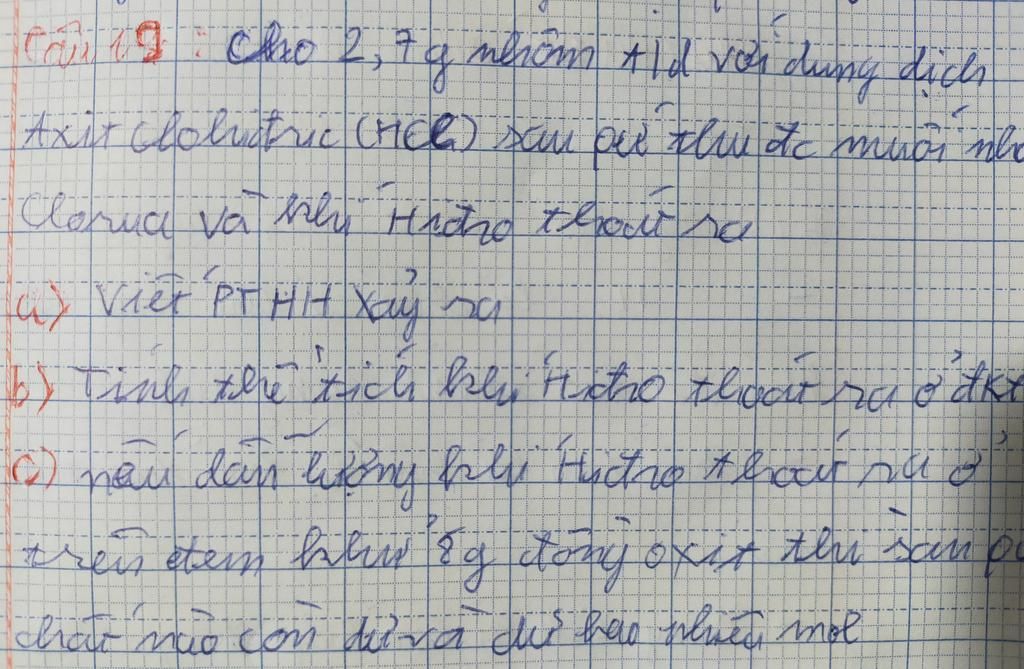 Câu 19: Cho 2,7g nhôm t/d với dung dịch
Axit Clohiđric (HCl) sau pứ thu đc muối nhô
Clorua và khí Hiđro thoát ra
a) Viết PTHH xảy ra
b) Tính thể tích khí Hiđro thoát ra ở đkt
c) nếu dẫn lượng khí Hiđro thoát ra ở
trên đem khử 8g đồng oxit thì sau p
chất nào còn dư và dư bao nhiêu mol